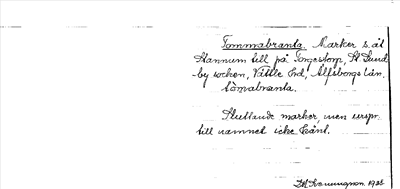 Tommabranta. Marker s. åt
Stannum till på Tongestorp, St. Lund
by socken, Vättle hd, Älfsborgs län.
tòmabranta.
Sluttande marker, men urspr.
till namnet icke känt.
1928